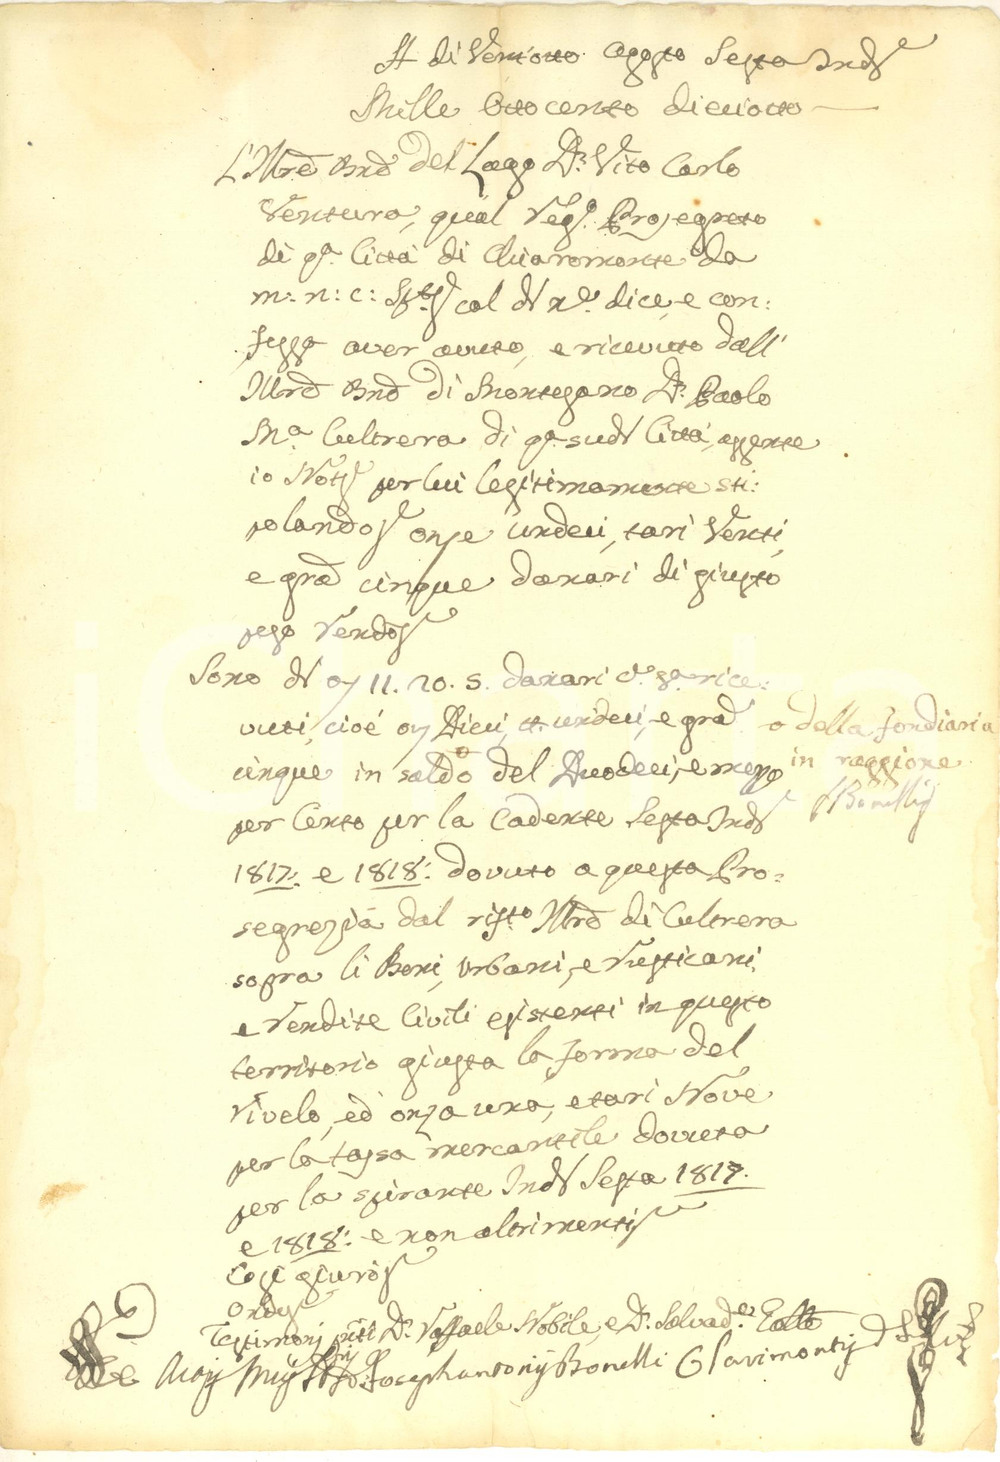 A di Ventotto Agosto Sesta Ind.e
Mille Ottocento dieciotto
L'Ill.re Bne del Lago D.n Vito Carlo
Ventura, qual Reg.o Prosegreto
di q.a Città di Chiaromonte da
m: n: c: col dice, e con:
fessa aver avuto, e ricevuto dall'
Ill.re Bne di Montegano D.n Paolo
M.a Cultrera di q.a sud.a Città, assente
io Not.o per lui legitimamente sti:
polando onze undeci, tarì Venti,
e grã cinque danari di giusto
peso
Sono d. oz 11. 20. 5. danari c.e s.a rice:
vuti, cioè oz Dieci, tt. undeci, e grã
cinque in saldo del Duodeci, e mezzo
o della fondiaria
in raggione
Bonelli
per Cento per la Cadente Sesta Ind.e
1817: e 1818: dovuto a questa Pro:
segrezia dal risp.to Ill.re di Cultrera
sopra li Beni, Urbani, e Rusticani,
e Rendite Civili esistenti in questo
territorio giusta la forma del
Rivelo, ed onza una, e tarì Nove
per la tassa mercantile dovuta
per la spirante Ind.e Sesta 1817.
e 1818: e non altrimenti
Così giurò
Testimonj D.n Raffaele Nobile, e D.n Salvad.e
Josephantonij Bonelli Claramontis